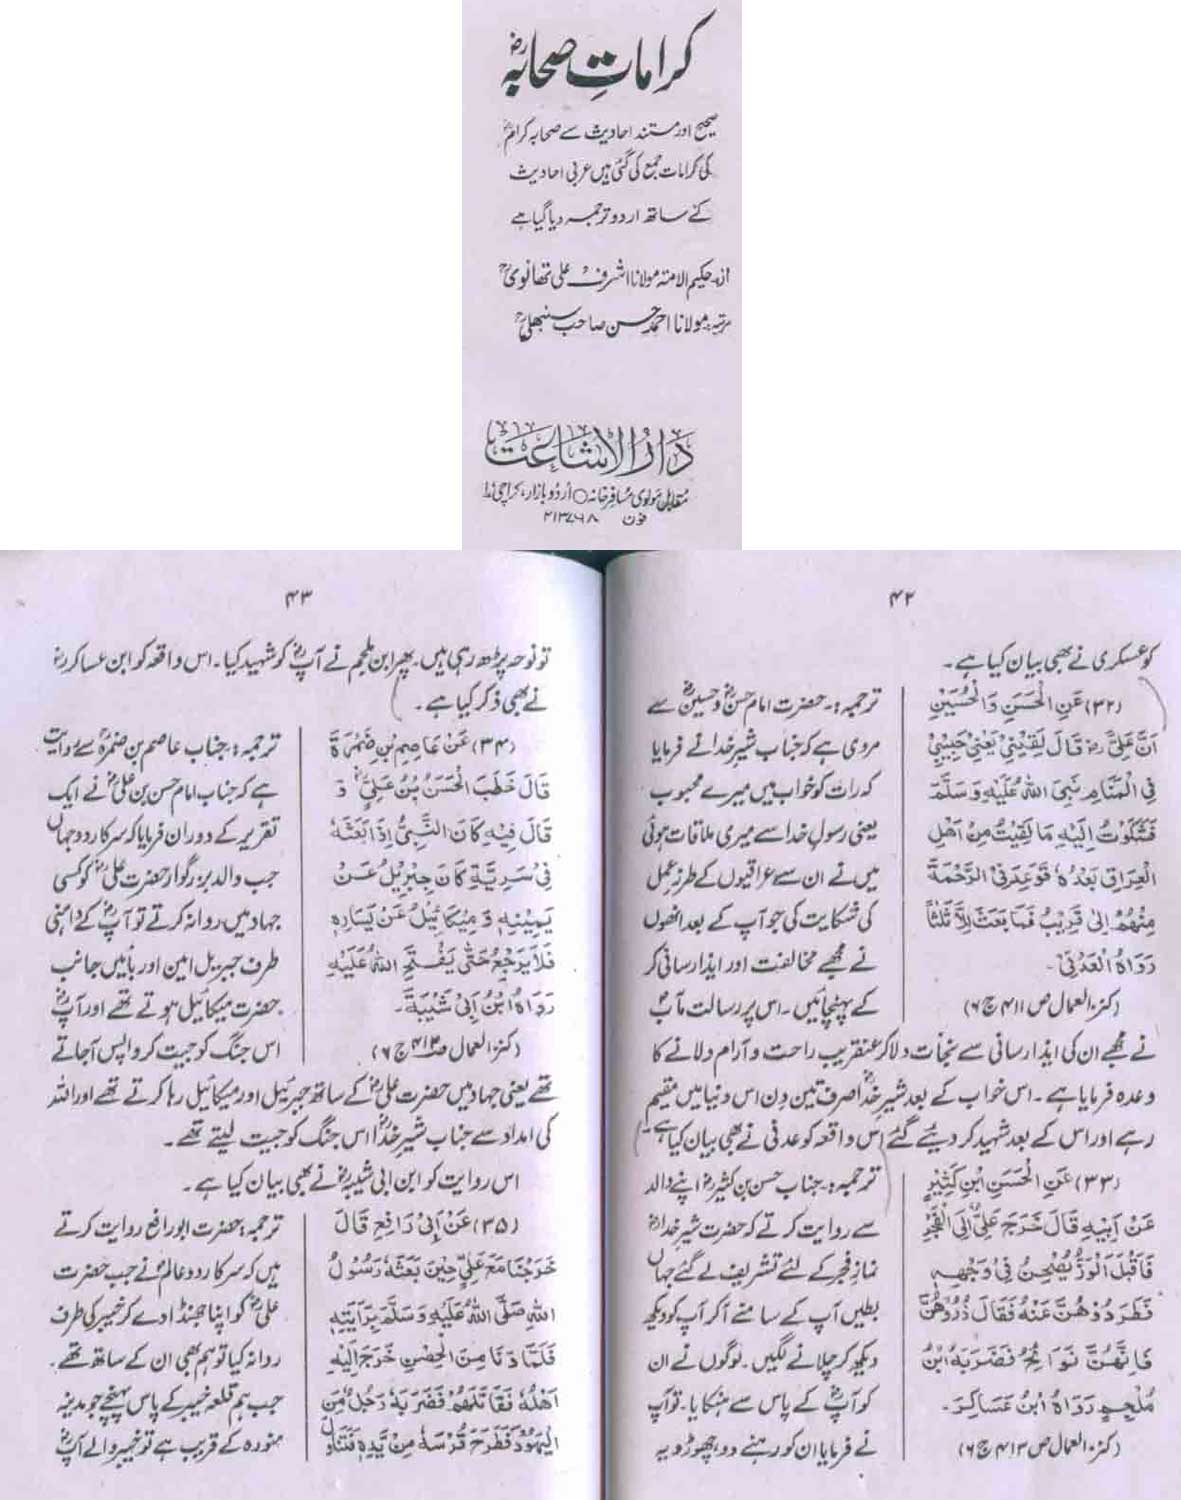 کراماتِ صحابہؓ
صحیح اور مستند احادیث سے صحابہ کرامؓ
کی کرامات جمع کی گئی ہیں عربی احادیث
کے ساتھ اردو ترجمہ دیا گیا ہے
از۔ حکیم الامتہ مولانا اشرف علی تھانویؒ
مرتبہ۔ مولانا احمد حسن صاحب سنبھلیؒ
دَارُ الْاِشَاعَت
مقابل مولوی مسافر خانہ ○ اردو بازار، کراچی ۱
فون ۲۱۳۷۶۸
۴۲
کو عسکری نے بھی بیان کیا ہے۔
(۳۲) عَنِ الْحَسَنِ وَالْحُسَیْنِ
اَنَّ عَلِیًّ رض قَالَ لَقِیَنِیْ یَعْنِیْ حَبِیْبِیْ
فِی الْمَنَامِ نَبِیَّ اللہُ عَلَیْہِ وَسَلَّمَ
فَشَکَوْتُ اِلَیْہِ مَا لَقِیْتُ مِنْ اَھْلِ
الْعِرَاقِ بَعْدَہٗ فَوَعَدَنِی الرَّحْمَۃَ
مِنْھُمْ اِلٰی قَرِیْبٍ فَمَا بَعَثَ اِلَّا ثَلٰثًا
رَوَاہُ الْعَدَنِیْ۔
(کنز العمال ص ۴۱۱ ج ۶)
ترجمہ:۔ حضرت امام حسنؓ و حسینؓ سے
مروی ہے کہ جناب شیرِ خدا نے فرمایا
کہ رات کو خواب میں میرے محبوب
یعنی رسولِ خدا سے میری ملاقات ہوئی
میں نے ان سے عراقیوں کے طرزِ عمل
کی شکایت کی جو آپ کے بعد انھوں
نے مجھے مخالفت اور ایذا رسانی کر
کے پہنچائیں۔ اس پر رسالت مآبؐ
نے مجھے ان کی ایذا رسانی سے نجات دلا کر عنقریب راحت و آرام دلانے کا
وعدہ فرمایا ہے۔ اس خواب کے بعد شیرِ خداؓ صرف تین دن اس دنیا میں مقیم
رہے اور اس کے بعد شہید کر دیئے گئے اس واقعہ کو عدنی نے بھی بیان کیا ہے۔
(۳۳) عَنِ الْحَسَنِ ابْنِ کَثِیْرٍ
عَنْ اَبِیْہِ قَالَ خَرَجَ عَلِیٌّ اِلَی الْفَجْرِ
فَاَقْبَلَ الْوَزُّ یَصِحْنَ فِیْ وَجْھِہٖ
فَطَرَدُوْھُنَّ عَنْہُ فَقَالَ ذَرُوْھُنَّ
فَاِنَّھُنَّ نَوَائِحُ فَضَرَبَہُ ابْنُ
مُلْجِمٍ رَوَاہُ ابْنُ عَسَاکِرَ۔
(کنز العمال ص ۴۱۳ ج ۶)
ترجمہ:۔ جناب حسن بن کثیرؓ اپنے والد
سے روایت کرتے کہ حضرت شیرِ خداؓ
نمازِ فجر کے لئے تشریف لے گئے جہاں
بطیں آپ کے سامنے آکر آپ کو دیکھ
دیکھ کر چلانے لگیں۔ لوگوں نے ان
کو آپؓ کے پاس سے ہنکایا۔ تو آپ
نے فرمایا ان کو رہنے دو، چھوڑو یہ
۴۳
تو نوحہ پڑھ رہی ہیں۔ پھر ابن ملجم نے آپؓ کو شہید کیا۔ اس واقعہ کو ابن عساکر رض
نے بھی ذکر کیا ہے۔
(۳۴) عَنْ عَاصِمِ بْنِ ضَمُرَۃَ
قَالَ خَطَبَ الْحَسَنُ بْنُ عَلِیٍّؓ وَ
قَالَ فِیْہِ کَانَ النَّبِیُّ اِذَا بَعَثَہٗ
فِیْ سَرِیَّۃٍ کَانَ جِبْرِیْلُ عَنْ
یَمِیْنِہٖ وَ مِیْکَائِیْلُ عَنْ یَسَارِہٖ
فَلَا یَرْجِعُ حَتّٰی یَفْتَحَ اللہُ عَلَیْہِ
رَوَاہُ ابْنُ اَبِیْ شَیْبَۃَ۔
(کنز العمال ص۴۱۲ ج ۶)
ترجمہ:۔ جناب عاصم بن ضمرہؓ سے روایت
ہے کہ جناب امام حسن بن علیؓ نے ایک
تقریر کے دوران فرمایا کہ سرکار دو جہاں
جب والد بزرگوار حضرت علیؓ کو کسی
جہاد میں روانہ کرتے تو آپؓ کے داہنی
طرف جبریل امین اور بائیں جانب
حضرت میکائیل ہوتے تھے اور آپؓ
اس جنگ کو جیت کر واپس آجاتے
تھے یعنی جہاد میں حضرت علیؓ کے ساتھ جبرئیل اور میکائیل رہا کرتے تھے اور اللہ
کی امداد سے جناب شیرِ خداؓ اس جنگ کو جیت لیتے تھے۔
اس روایت کو ابن ابی شیبہؓ نے بھی بیان کیا ہے۔
(۳۵) عَنْ اَبِیْ رَافِعٍ قَالَ
خَرَجْنَا مَعَ عَلِیٍّ حِیْنَ بَعَثَہٗ رَسُوْلُ
اللہِ صَلَّی اللہُ عَلَیْہِ وَسَلَّمَ بِرَایَتِہٖ
فَلَمَّا دَنَا مِنَ الْحِصْنِ خَرَجَ اِلَیْہِ
اَھْلُہٗ فَقَاتَلَھُمْ فَضَرَبَہٗ رَجُلٌ مِنَ
الْیَھُوْدِ فَطَرَحَ تُرْسَہٗ مِنْ یَّدِہٖ فَتَنَاوَلَ
ترجمہ:۔ حضرت ابو رافع روایت کرتے
ہیں کہ سرکار دو عالمؐ نے جب حضرت
علیؓ کو اپنا جھنڈا دے کر خیبر کی طرف
روانہ کیا تو ہم بھی ان کے ساتھ تھے۔
جب ہم قلعہ خیبر کے پاس پہنچے جو مدینہ
منورہ کے قریب ہے تو خیبر والے آپؓ